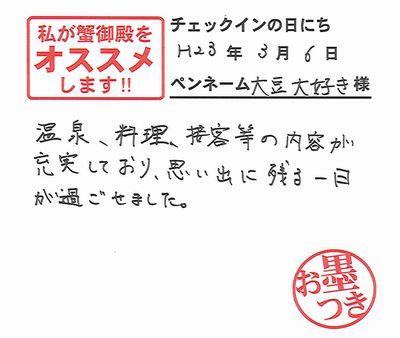 私が蟹御殿を
オススメ
します!!
チェックインの日にち
H23年3月6日
ペンネーム大豆大好き様
温泉、料理、接客等の内容が
充実しており、思い出に残る一日
が過ごせました。
お墨
つき